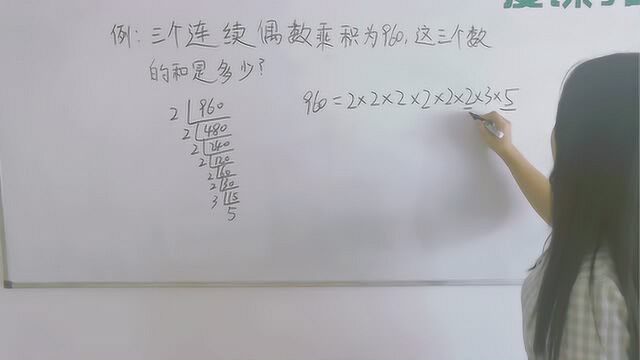 例：三个连续偶数乘积为960，这三个数
的和是多少？
2 960
2 480
2 240
2 120
2 60
2 30
3 15
5
960=2×2×2×2×2×2×3×5